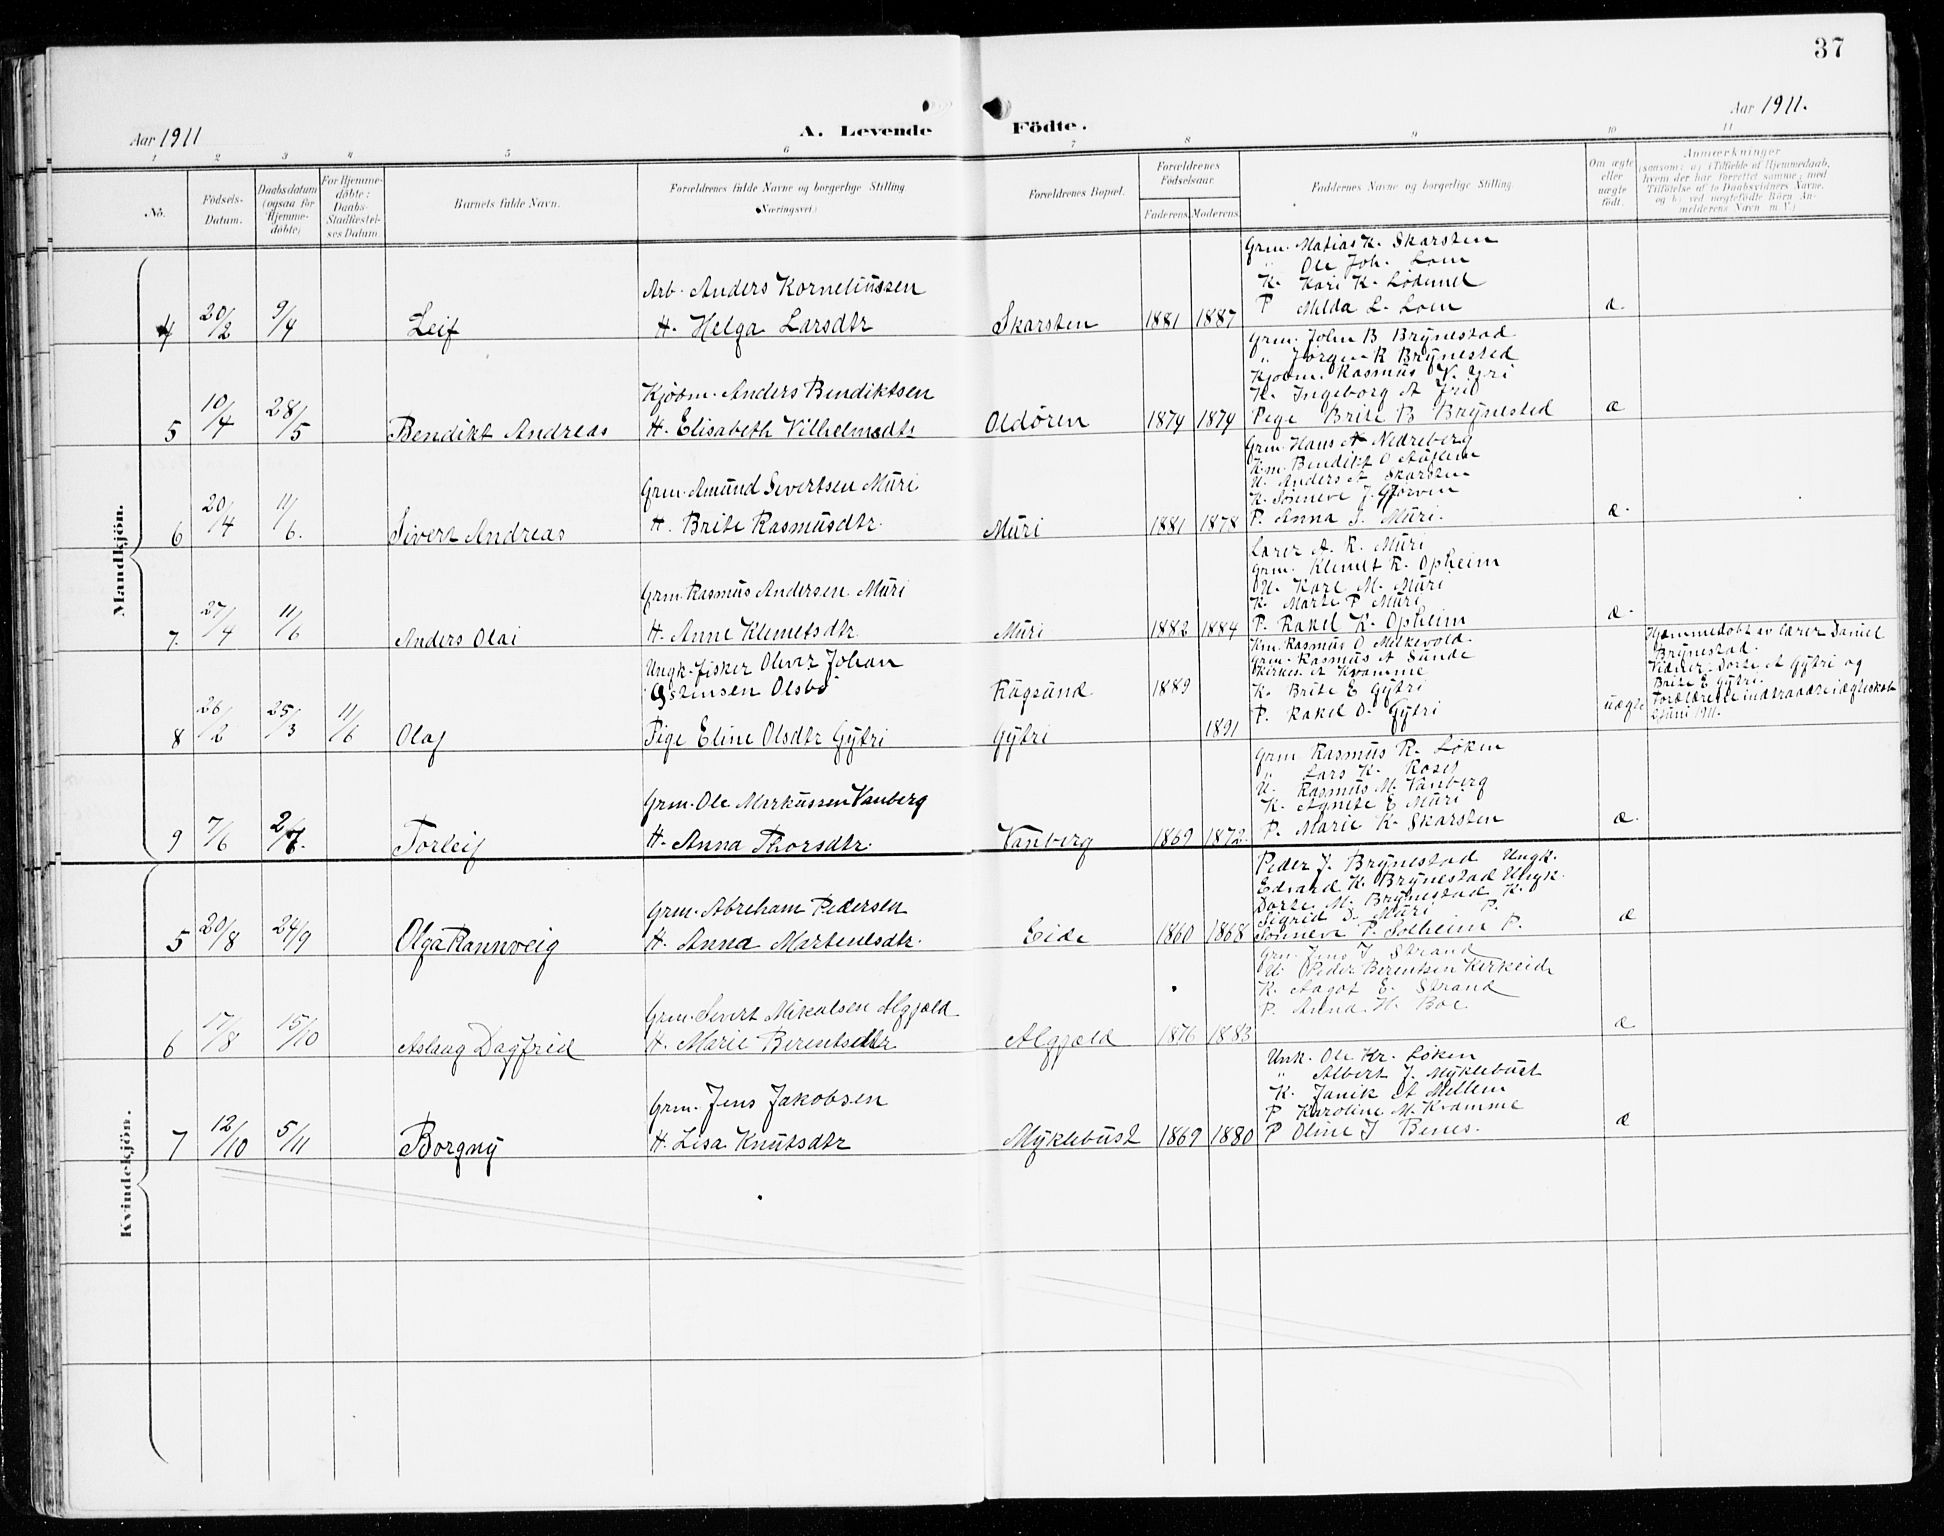 37
Aar 1911
A. Levende Födte.
Aar 1911.
1 2 3 4 5 6 7 8 9 10 11
No.
Födsels-Datum.
Daabsdatum (ogsaa for Hjemme-döbte)
For Hjemme-döbte: Daabs-Stadfæstel-ses Datum
Barnets fulde Navn.
Forældrenes fulde Navne og borgerlige Stilling (Næringsvei)
Forældrenes Bopæl.
Forældrenes Födselsaar.
Faderens Moderens
Faddernes Navne og borgerlige Stilling.
Om ægte eller uægte födt.
Anmærkninger
(saasom: a) i Tilfælde af Hjemmedaab,
hvem der har forrettet samme, med
Tilföielse af to Daabsvidners Navne,
og b) ved uægtefödte Börn An-
melderens Navn m. V.)
Mandkjön.
4 20/2 9/4 Leif
Arb. Anders Korneliussen
H. Helga Larsdtr
Skarsten 1881 1887
Grm. Matias K. Skarsten
" Ole Joh. Loen
K. Kari K. Lødemel
P Milda L. Loen
æ
5 10/4 28/5 Bendikt Andreas
Kjöbm. Anders Bendiktsen
H. Elisabeth Vilhelmsdtr
Oldören 1879 1879
Grm. John B Brynestad
" Jörgen R Brynestad
Kjöbm. Rasmus V. Yri
K. Ingeborg A Yri
Pige Brite B Brynestad
æ
6 20/4 11/6. Sivert Andreas
Grm. Amund Sivertsen Muri
H. Brite Rasmusdtr.
Muri 1881 1878
Grm. Hans A Nedreberg
Km. Bendikt O Auflem
U. Anders A Skarsten
K. Sönneve J. Gjörven
P. Anna S. Muri.
æ.
7. 27/4 11/6 Anders Olai
Grm. Rasmus Andersen Muri
H. Anne Klemetsdtr.
Muri 1882 1884
Lærer A. R. Muri
Grm. Klemet R. Opheim
U. Karl M. Muri
K. Marte P Muri
P. Rakel K. Opheim
æ.
8 26/2 25/3 11/6 Olaf
Ungk. fisker Oluf Johan
Östensen Olsbö
Pige Eline Olsdtr Gytri
Rugsund 1889
Gytri 1891
Km. Rasmus O Melkevold.
Grm. Rasmus A Sunde
Kirkes. A Kvamme
K. Brite E Gytri
P. Rakel O. Gytri
uægte
Hjemmedöbt av lærer Daniel
Brynestad.
Vidner: Dorte A Gytri og
Brite E Gytri.
Forældrene indtraadte i ægteskab
2 juni 1911.
9 7/6 2/7. Torleif
Grm. Ole Markussen Vanberg
H. Anna Thorsdtr.
Vanberg 1869 1872
Grm Rasmus R. Löken
" Lars K. Roset
U. Rasmus M. Vanberg
K. Agnete E Muri
P. Marie K. Skarsten
æ.
Kvindekjön.
5 20/8 24/9 Olga Rannveig
Grm. Abraham Pedersen
H. Anna Martensdtr.
Eide 1860 1868
Peder J. Brynestad Ungk.
Edvard K. Brynestad Ungk.
Dorte M. Brynestad K.
Sigrid S. Muri P.
Sönneve P. Solheim P.
æ
6 17/8 15/10 Aslaug Dagfrid
Grm. Sivert Mikalsen Algjæld
H. Marie Berentsdtr
Algjæld 1876 1883
Grm. Jens J Strand
U. Peder Berentsen Kirkeide
K. Aagot E. Strand
P. Anna H. Boe
æ
7 12/10 5/11 Borgny
Grm. Jens Jakobsen
H. Lisa Knutsdtr
Myklebust 1869 1880
Unk. Ole Kr. Löken
" Albert J. Myklebust
K. Janik A Mellem
P Karoline M. Kvamme
P Oline J Benes.
æ